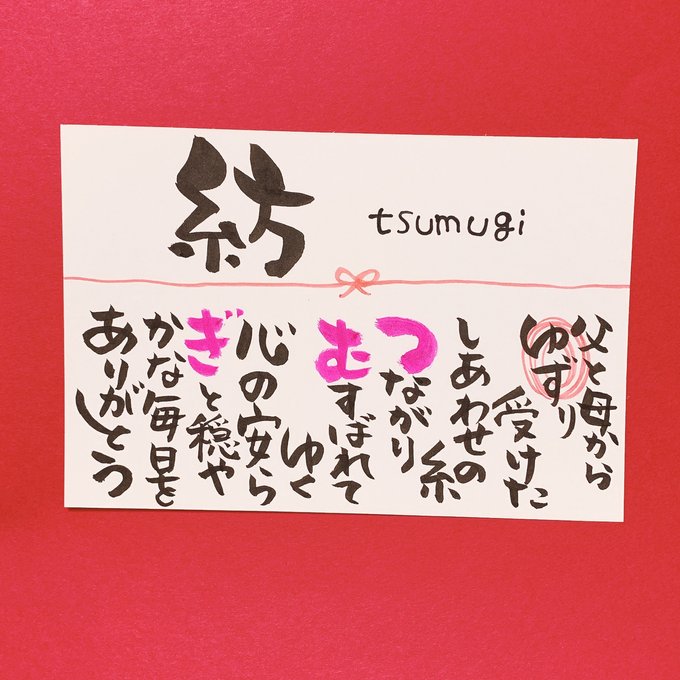 紡
tsumugi
父と母から
ゆずり
受けた
しあわせの
糸
つながり
むすばれて
ゆく
心の安ら
ぎと穏や
かな毎日を
ありがとう